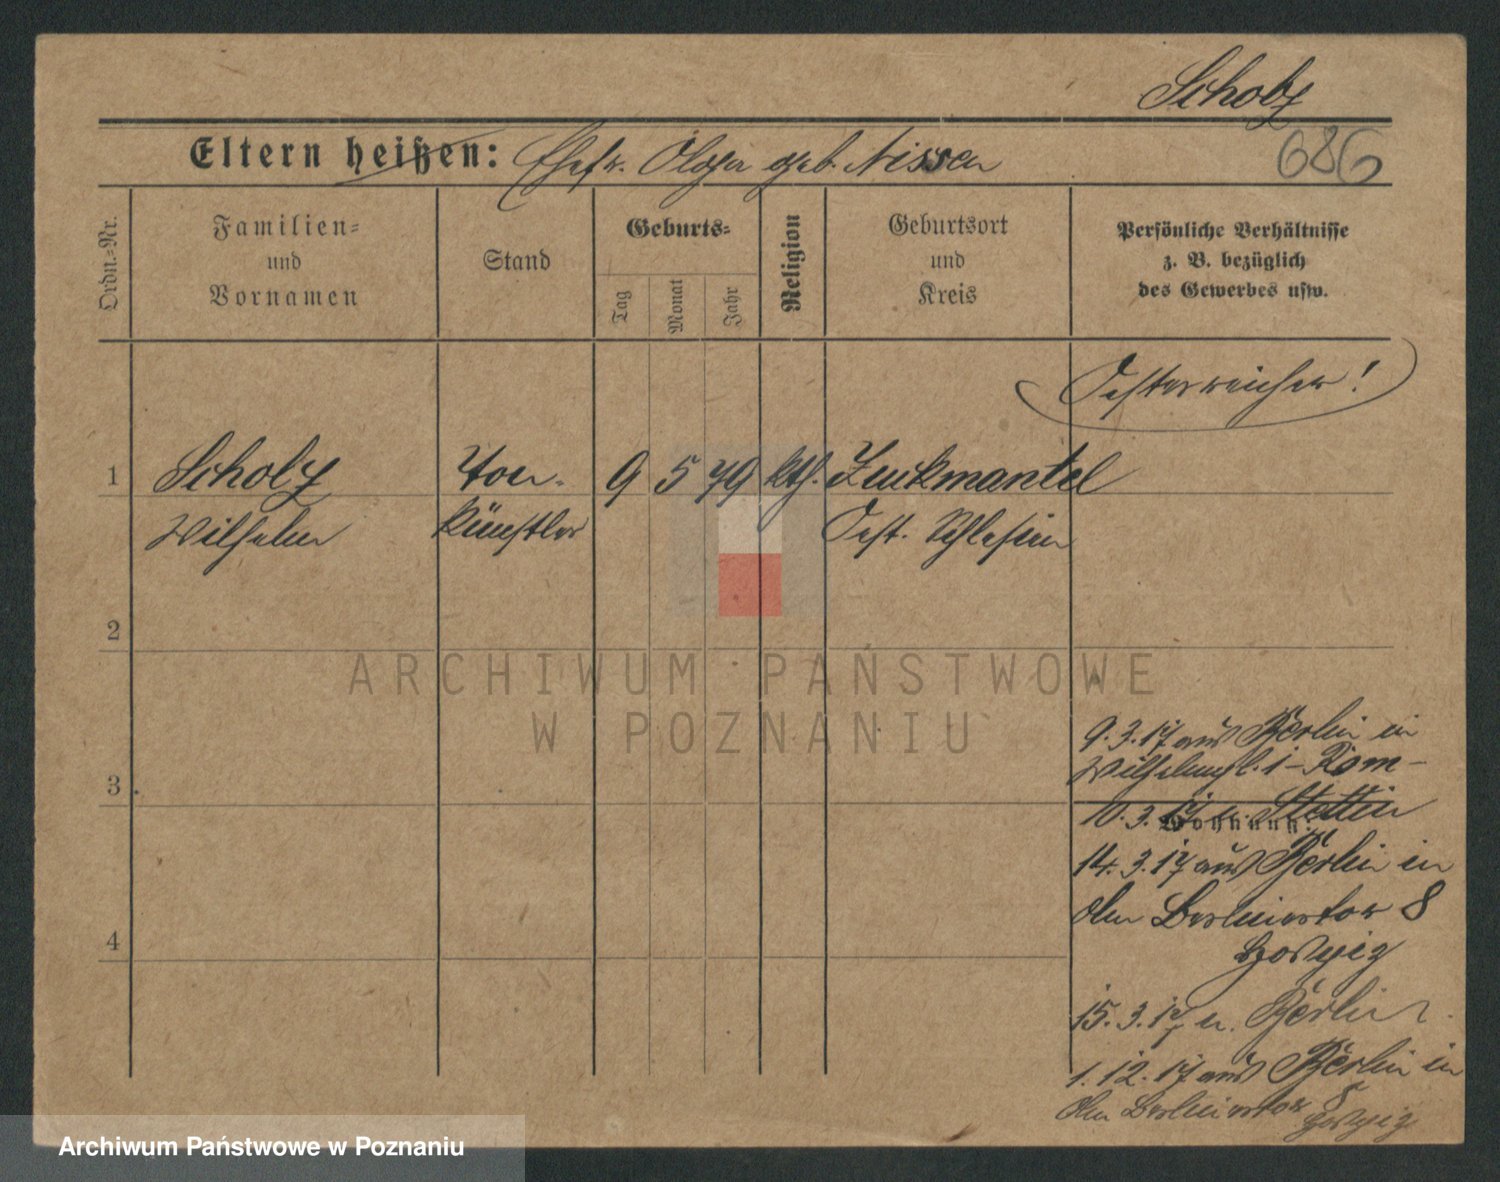 Scholz
Eltern heißen: Ehefr. Olga geb. Nissen
686
Ordn.-Nr.
Familien-
und
Vornamen
Stand
Geburts-
Tag
Monat
Jahr
Religion
Geburtsort
und
Kreis
Persönliche Verhältnisse
z. B. bezüglich
des Gewerbes usw.
Oesterreicher!
1
Scholz Ton- 9 5 79 kth. Zuckmantel
Wilhelm künstler Oest. Schlesien
2
ARCHIWUM PAŃSTWOWE
W POZNANIU
9.3.17 aus Berlin in
3
10.3.17 n. Stettin
Wohnung:
14.3.17 aus Berlin in
Am Berlinertor 8
4
15.3.17 n. Berlin
1.12.17 aus Berlin in
Am Berlinertor 8
Archiwum Państwowe w Poznaniu